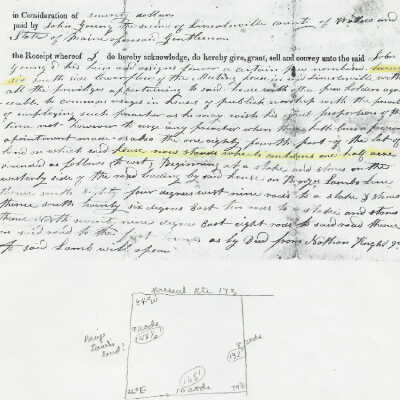 in Consideration of seventy dollars
paid by John Young the of Lincolnville County of Waldo and
State of Maine aforesaid Gentleman
the Receipt whereof I do hereby acknowledge, do hereby give, grant, sell and convey unto the said John
Young & his and assigns forever a certain pew numbered
six on the lower floor of the Meeting house in said Lincolnville with
all the privileges appertaining to said house with the pew holders agre
eable to common usages in houses of publick worship with the
of employing such preacher as he may with his just proportion of the
time not however to any preacher when there hath been a previous
appointment made also the one eighty fourth part of the lot of
land on which said house now stands which contains one half acre
bounded as follows to wit, Beginning at a stake and stones on the
westerly side of the road leading by said house on Lambs line
thence south eighty four degrees west nine rods to a stake & stones
thence south twenty six degrees East ten rods to a stake and stones
thence North seventy nine degrees East eight rods to said road thence
on said road to the first as by Deed from Nathan Knight
to said Lamb will appear
Rte 173
84° W
9 rods
Lambs
land?
8 rods
10 rods
26° E
79° E